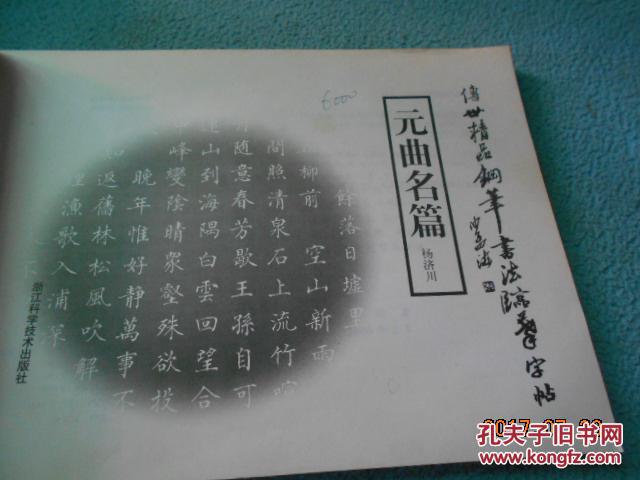 傳世精品鋼筆書法臨摹字帖
元曲名篇
杨济川
6000
餘落日墟里
柳前 空山新雨
間照清泉石上流竹喧
隨意春芳歇王孫自可
山到海隅白雲回望合
峰變陰晴衆壑殊欲投
晚年惟好靜萬事不
返舊林松風吹解
漁歌入浦深
浙江科学技术出版社
孔夫子旧书网
www.kongfz.com